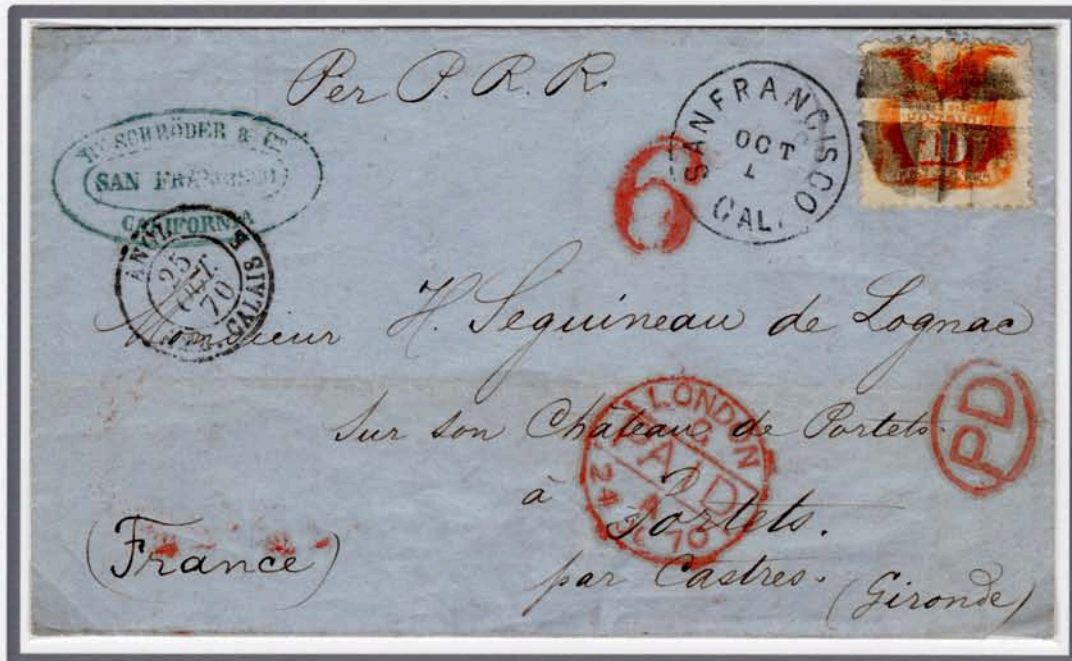 Per P. R. R.
Hy. SCHRÖDER & Co
SAN FRANCISCO
CALIFORNIA
SAN FRANCISCO
OCT
CAL.
POSTAGE
10
6
ANGL.
25
OCT.
70
CALAIS
Monsieur H. Seguineau de Lognac
sur son Château de Portets.
à Portets.
par Castres. (Gironde)
(France)
LONDON
PAID
24
70
PD